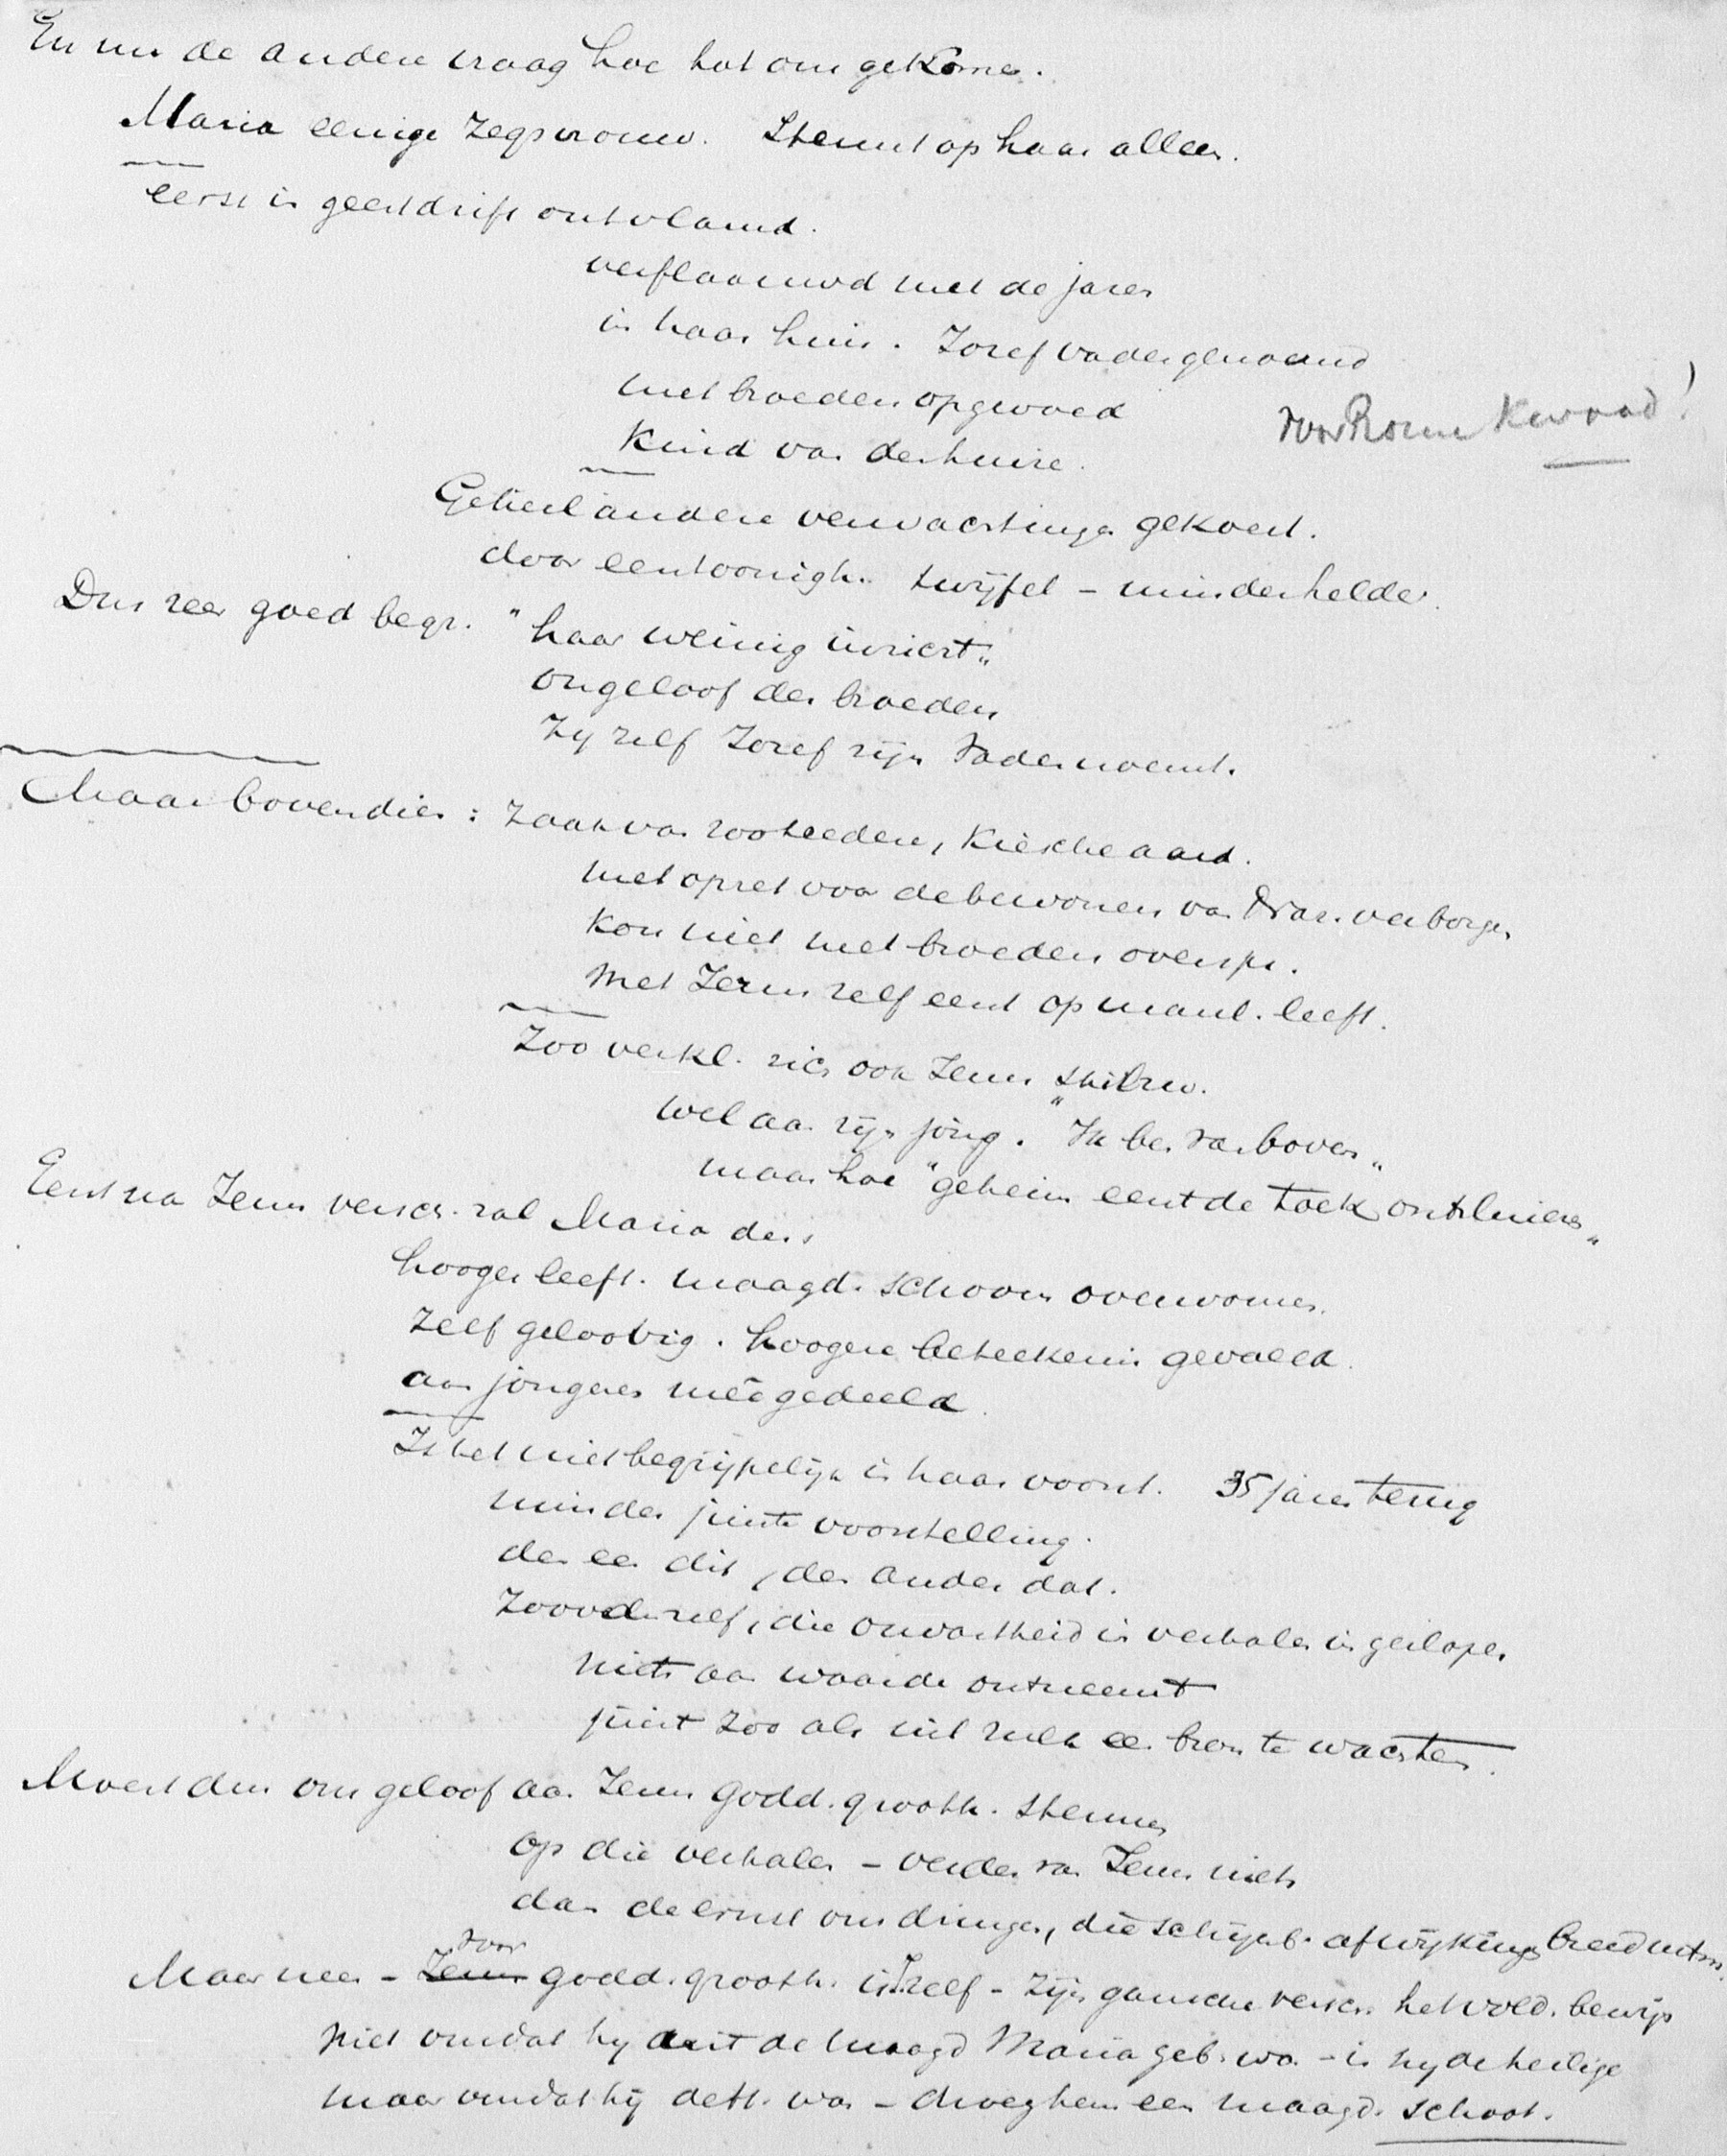 En nu de andere vraag hoe tot ons gekomen.
Maria eenige zegsvrouw. Steunt op haar alleen.
eerst in geestdrift ontvlamd.
verflaauwd met de jaren
in haar huis. Jozef vader genoemd
met broeders opgevoed
Kind van den huize.
voor Rome kwaad!
Geheel andere verwachtingen gekoest.
door eentoonigh. twijfel – minder helder.
Dus zeer goed begr. "haar weinig inzicht"
ongeloof der broeders
Zij zelf Jozef zijn vader noemt.
Maar bovendien: Zaak van zoo teedere, kiesche aard.
met opzet voor de bewoners van Naz. verborgen
Kon niet met broeders overspr.
Met Jezus zelf eerst op manl. leeft.
Zoo verkl. zich ook Jezus stilzw.
wel aan zijn jong. "Ik ben van boven"
maar hoe "geheim eerst de
Eerst na Jezus versch. zal Maria dus
hooger leeft. maagd. schroom overwonnen.
Zelf geloovig. hoogere beteekenis gevoeld.
aan jongeren meêgedeeld.
Is het niet begrijpelijk in haar voorst. 35 jaren terug
minder juiste voorstelling.
den een dit, den ander dat.
die onvastheid in verhalen in geslopen
niets aan waarde ontneemt
juist zoo als uit zulk een bron te wachten.
Moest dus ons geloof aan Jezus godd. grooth. steunen
op die verhalen – verder van Jezus niets
dan de ernst ons dringen, die schijnb. afwijkingen breed
Maar neen – voor godd. grooth. is J. zelf – zijn gansche versch. het vold. bewijs
Niet omdat hij uit de maagd Maria geb. was – is hij de heilige
maar omdat hij dett. was – droeg hem een maagd. schoot.